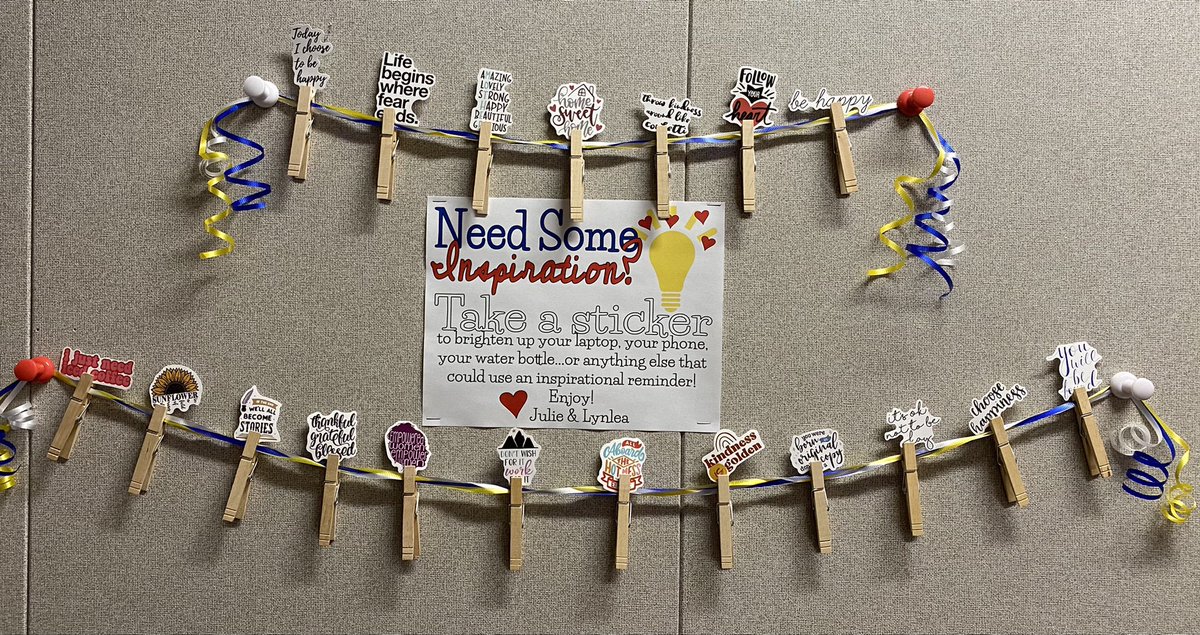 Today
I choose
to be
happy
Life
begins
where
fear
ends.
AMAZING
LOVELY
STRONG
HAPPY
BEAUTIFUL
home
Sweet
home
throw kindness
around like
confetti
FOLLOW
YOUR
heart
be happy
Need Some
Inspiration?
Take a sticker
to brighten up your laptop, your phone,
your water bottle...or anything else that
could use an inspirational reminder!
Enjoy!
Julie & Lynlea
i just need
iced coffee
SUNFLOWER
WE'LL ALL
BECOME
STORIES
thankful
grateful
blessed
empowered
women
empower
DON'T WISH
FOR IT
work
IT
THE
HOT MESS
kindness
golden
you were
born an
original
copy
it's ok
not to be
okay
choose
happiness
you
will
be